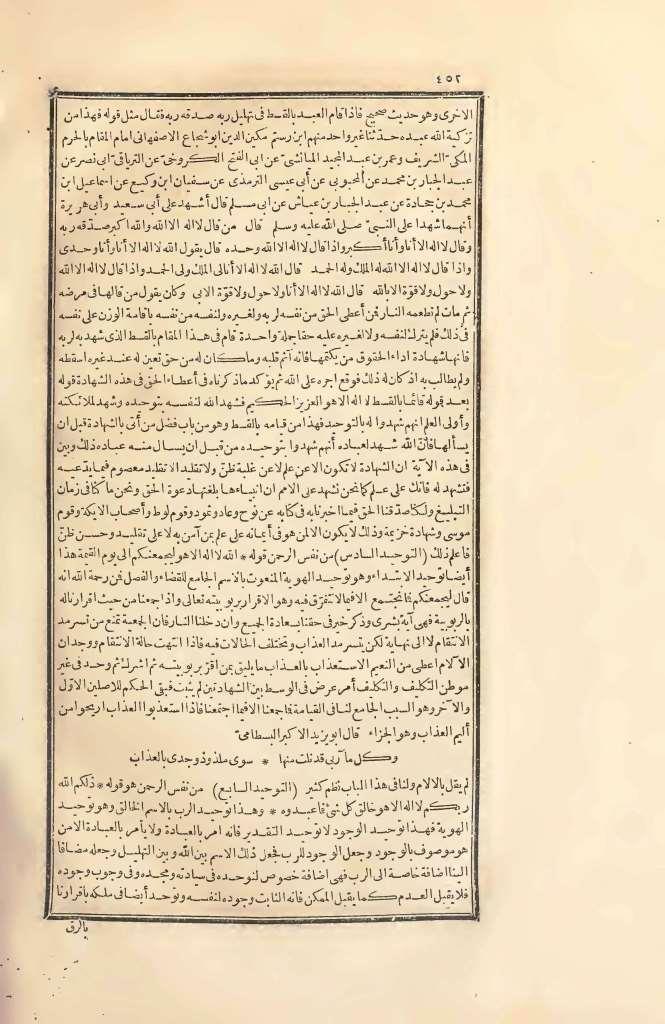 ٤٥٢
الاخرى وهو حديث صحيح فاذا قام العبد بالقسط فى تهليل ربه صدقه ربه فقال مثل قوله فهذا من
تزكية الله عبده حدثنا غير واحد منهم ابن رستم مكين الدين ابو شجاع الاصفهانى امام المقام بالحرم
المكى الشريف وعمر بن عبد المجيد الميانشى عن ابى الفتح الكروخى عن الترياقى ابى نصر عن
عبد الجبار بن محمد عن المحبوبى عن أبى عيسى الترمذى عن سفيان ابن وكيع عن اسماعيل ابن
محمد بن جحادة عن عبد الجبار بن عياش عن ابى مسلم قال أشهد على أبى سعيد وأبى هريرة
أنهما شهدا على النبى صلى الله عليه وسلم قال من قال لا اله الا الله والله اكبر صدقه ربه
وقال لا اله الا أنا وأنا أكبر واذا قال لا اله الا الله وحده قال يقول الله لا اله الا أنا وأنا وحدى
واذا قال لا اله الا الله له الملك وله الحمد قال الله لا اله الا أنا لى الملك ولى الحمد واذا قال لا اله الا الله
ولا حول ولا قوة الا بالله قال الله لا اله الا أنا ولا حول ولا قوة الا بى وكان يقول من قالها فى مرضه
ثم مات لم تطعمه النار فمن أعطى الحق من نفسه لربه ولغيره ولنفسه من نفسه باقامة الوزن على نفسه
فى ذلك فلم يترك لنفسه ولا لغيره عليه حقا جملة واحدة قام فى هذا المقام بالقسط الذى شهد به لربه
فانها شهادة اداء الحقوق من يكتمها فانه آثم قلبه وما كان له من حق تعين له عند غيره اسقطه
ولم يطالب به اذ كان له ذلك فوقع اجره على الله ثم يؤكد ما ذكرناه فى أعطاء الحق فى هذه الشهادة قوله
بعد قوله قائما بالقسط لا اله الا هو العزيز الحكيم فشهد الله لنفسه بتوحيده وشهد لملائكته
وأولى العلم انهم شهدوا له بالتوحيد فهذا من قيامه بالقسط وهو من باب فضل من أتى بالشهادة قبل ان
يسألها فان الله شهد لعباده أنهم شهدوا بتوحيده من قبل ان يسال منه عباده ذلك وبين
فى هذه الآية ان الشهادة لا تكون الا عن علم لا عن غلبة ظن ولا تقليد الا تقليد معصوم فيما يدعيه
فتشهد له فانك على علم كما نحن نشهد على الامم ان انبياءها بلغتها دعوة الحق ونحن ما كنا فى زمان
التبليغ ولكنا صدقنا الحق فيما اخبرنا به فى كتابه عن نوح وعاد وثمود وقوم لوط وأصحاب الايكة وقوم
موسى وشهادة خزيمة وذلك لا يكون الا لمن هو فى أيمانه على علم بمن آمن به لا على تقليد وحسن ظن
فاعلم ذلك (التوحيد السادس) من نفس الرحمن قوله * الله لا اله الا هو ليجمعنكم الى يوم القيمة هذا
أيضا توحيد الابتداء وهو توحيد الهوية المنعوت بالاسم الجامع للقضاء والفصل فمن رحمة الله انه
قال ليجمعنكم فما نجتمع الا فيما لا تتفرق فيه وهو الاقرار بربوبيته تعالى واذا جمعنا من حيث اقرارنا له
بالربوبية فهى آية بشرى وذكر خير فى حقنا بسعادة الجميع وان دخلنا النار فان الجمعية تمنع من تسرمد
الانتقام لا الى نهاية لكن يتسرمد العذاب وتختلف الحالات فيه فاذا انتهت حالة الانتقام ووجدان
الآلام اعطى من النعيم الاستعذاب بالعذاب ما يليق بمن اقر بربوبيته ثم اشرك ثم وحد فى غير
موطن التكليف والتكليف أمر عرض فى الوسط بين الشهادتين لم يثبت فبقى الحكم للاصلين الاول
والآخر وهو السبب الجامع لنا فى القيامة فما جمعنا الا فيما اجتمعنا فاذا استعذبوا العذاب اريحوا من
أليم العذاب وهو الجزاء قال ابو يزيد الاكبر البسطامى
وكل مآربى قد نلت منها * سوى ملذوذ وجدى بالعذاب
لم يقل بالالام ولنا فى هذا الباب نظم كثير (التوحيد السابع) من نفس الرحمن هو قوله * ذلكم الله
ربكم لا اله الا هو خالق كل شئ فاعبدوه * وهذا توحيد الرب بالاسم الخالق وهو توحيد
الهوية فهذا توحيد الوجود لا توحيد التقدير فانه امر بالعبادة ولا يأمر بالعبادة الا من
هو موصوف بالوجود وجعل الوجود للرب فجعل ذلك الاسم بين الله وبين التهليل وجعله مضافا
الينا اضافة خاصة الى الرب فهى اضافة خصوص لنوحده فى سيادته ومجده وفى وجوب وجوده
فلا يقبل العدم كما يقبل الممكن فانه الثابت وجوده لنفسه ونوحد أيضا فى ملكه باقرارنا
بالرق